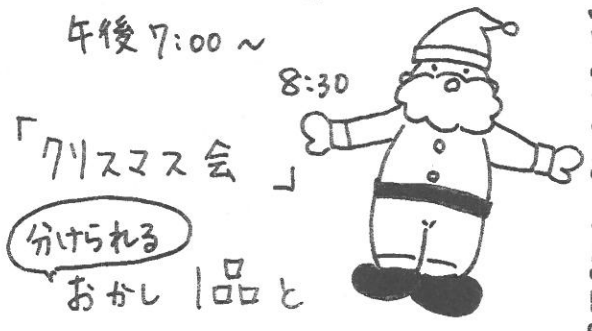 午後 7:00 ~
8:30
「クリスマス会」
分けられる
おかし 1品と